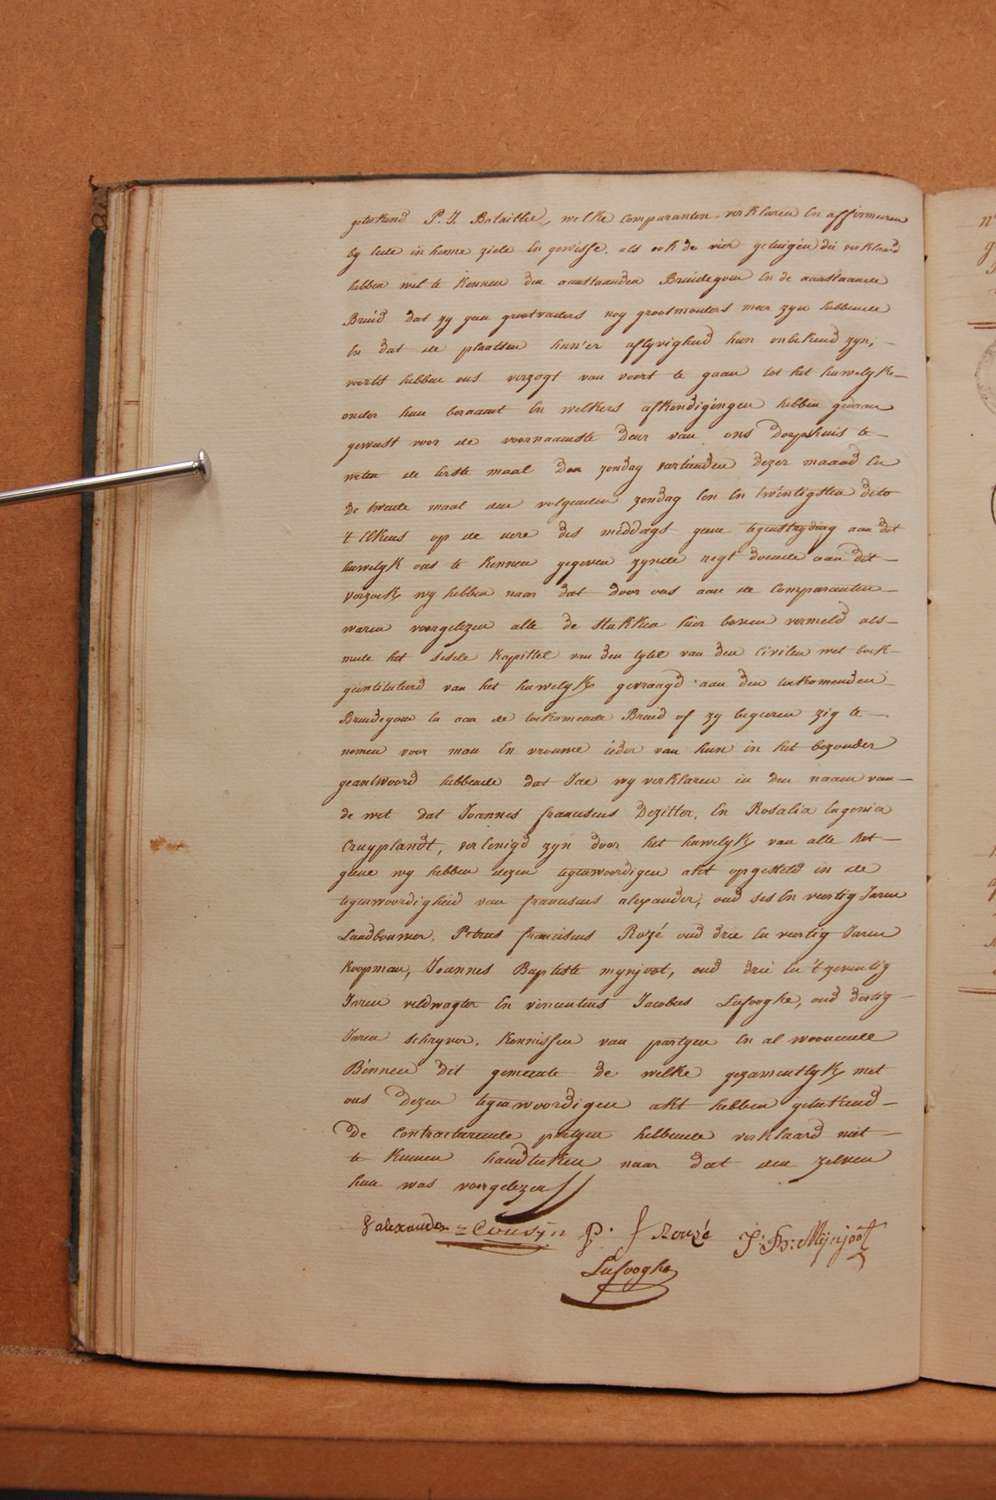 getekend P. J. Bataillie, welke Comparanten verklaren En affirmeren
by Eede in hunne ziele En gewisse, als ook de vier getuigen die verklaard
hebben wel te kennen den aanstaanden Bruidegom En de aanstaande
Bruid dat zy geen grootvaders nog grootmoeders meer zyn hebbende
En dat de plaatsen hun'er aflyvigheid hun onbekend zyn,
voorts hebben ons verzogt van voort te gaan tot het huwelyk
onder hun beraamt En welkers afkondigingen hebben gedaan
geweest voor de voornaamste Deur van ons Dorpshuis te
weten de Eerste maal den zondag Dezer maand En
de tweede maal den volgenden zondag Een En twintigsten dito
t'Elkens op de uere des middags geene tegenstryding aan dit
huwelyk ons te kennen gegeven zynde regt doende aan dit
verzoek wy hebben naar dat door ons aan de Comparanten
waren voorgelezen alle de stukken hier boven vermeld als
mede het sesde Kapittel van den tytel van den Civilen wet boek
geintituleerd van het huwelyk gevraagd aan den toekomenden
Bruidegom En aan de toekomende Bruid of zy begeeren zig te
nemen voor man En vrouwe ieder van hun in het bezonder
geantwoord hebbende dat Jae wy verklaren in den naam van
de wet dat Joannes franciscus Dezitter, En Rosalia Eugenia
Cruyplandt, verEenigd zyn door het huwelyk van alle het
gene wy hebben dezen tegenwoordigen akt opgesteld in de
tegenwoordigheid van franciscus alexander, oud ses En veertig Jaren
Landbouwer, Petrus franciscus Rozé oud drie En veertig Jaren
koopman, Joannes Baptiste mynjoot, oud drie En 'tgeventig
Jaren veldwagter En vincentius Jacobus Lafooghe, oud dertig
Jaren schryver, kennissen van partyen En al woonende
Binnen dit gemeente de welke gezamentlyk met
ons Dezen tegenwoordigen akt hebben getekend
De Contracterende partyen hebbende verklaard niet
te kunnen handteken naar dat den zelven
hun was voorgelezen
f alexander Cousyn P. f Rouzé J: B: Mijnjoot
Lafooghe